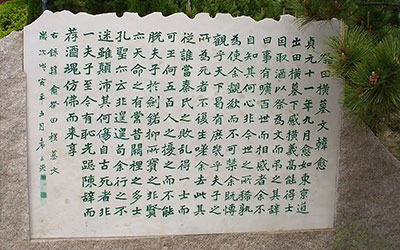 祭田横墓文韓愈
貞元十一年九月愈如東京道
出田横墓下感横義高能得士
因取酒以祭為文而吊之其辭
曰事有曠百世而相感者余不
自知其何心非今世之所稀孰
為使余歔欷而不可禁余既博
觀乎天下曷有庶幾乎夫子之
所為死者不復生嗟余去此其
從誰當秦氏之敗亂得一士而
可王何五百人之擾擾而不能
脱夫子於劍鋩抑所寶之非賢
亦天命之有常昔闕里之多士
孔聖亦云其遑遑苟余行之不
迷雖顛沛其何傷自古死者非
一夫子至今有耿光跽陳辭而
荐酒魂仿佛而来享
右録韓愈祭田横墓文
歲次戊寅年五月